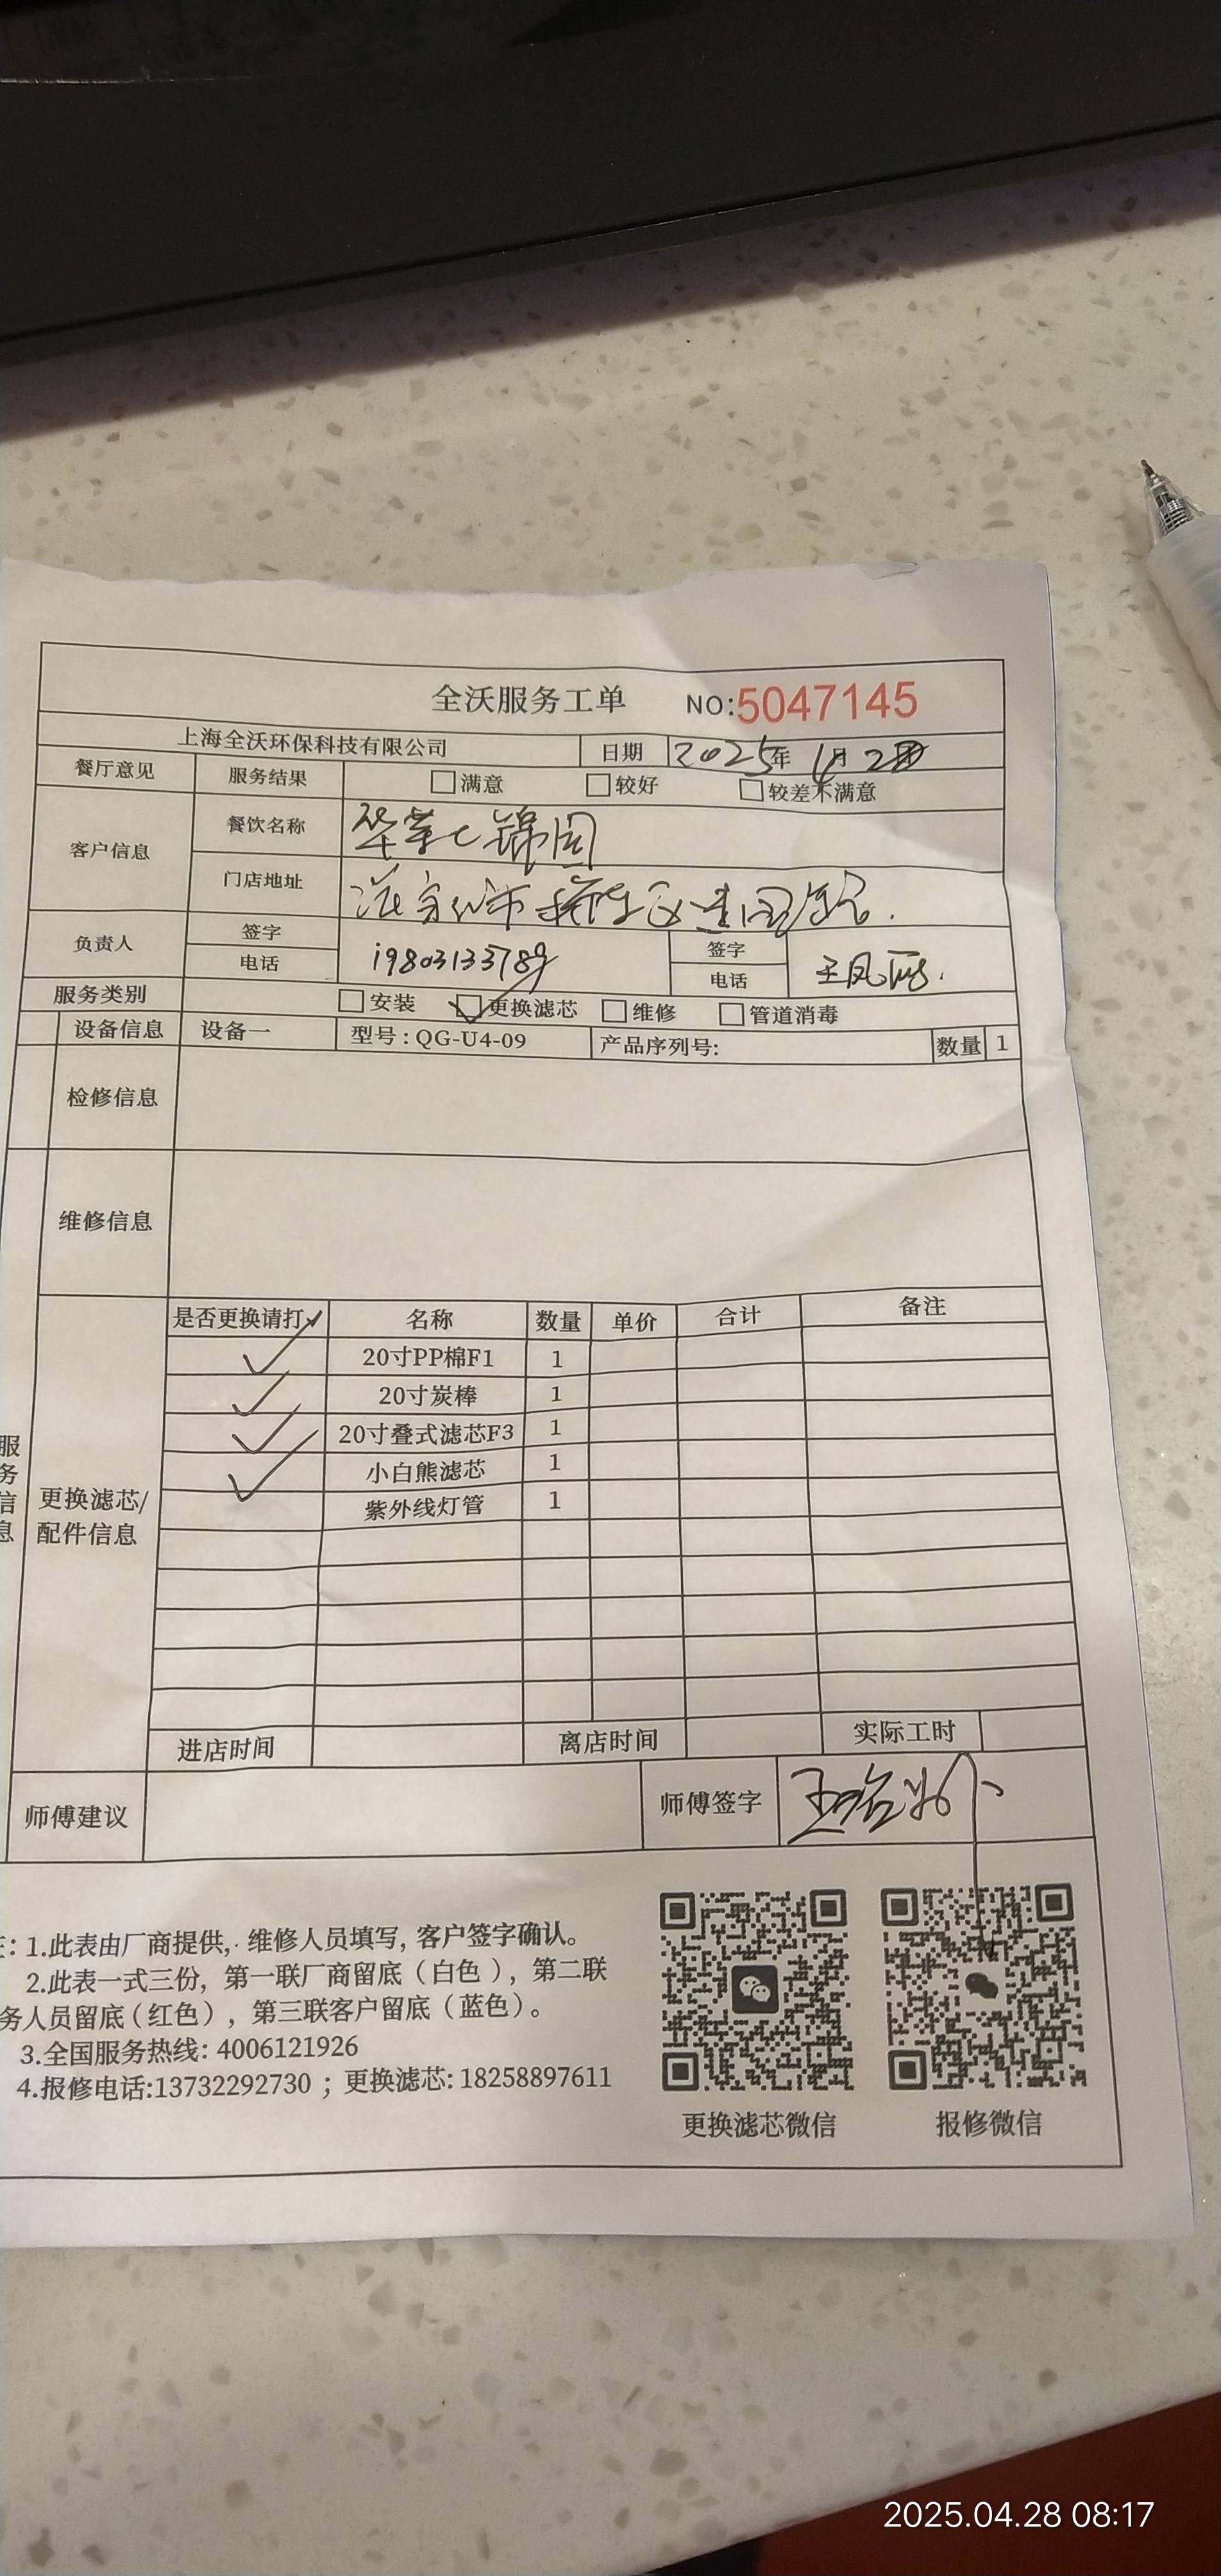 全沃服务工单 NO:5047145
上海全沃环保科技有限公司 日期 2025年 4月28日
餐厅意见 服务结果 满意 较好 较差不满意
客户信息 餐饮名称
门店地址 张家口市桥东区建国
负责人 签字 签字
电话 19803133789 电话
服务类别 安装 更换滤芯 维修 管道消毒
设备信息 设备一 型号：QG-U4-09 产品序列号: 数量 1
检修信息
维修信息
服务信息
更换滤芯/配件信息
是否更换请打✓ 名称 数量 单价 合计 备注
✓ 20寸PP棉F1 1
✓ 20寸炭棒 1
✓ 20寸叠式滤芯F3 1
✓ 小白熊滤芯 1
紫外线灯管 1
进店时间 离店时间 实际工时
师傅建议 师傅签字
：1.此表由厂商提供，维修人员填写，客户签字确认。
2.此表一式三份，第一联厂商留底（白色），第二联
务人员留底（红色），第三联客户留底（蓝色）。
3.全国服务热线：4006121926
4.报修电话:13732292730；更换滤芯：18258897611
更换滤芯微信 报修微信
2025.04.28 08:17